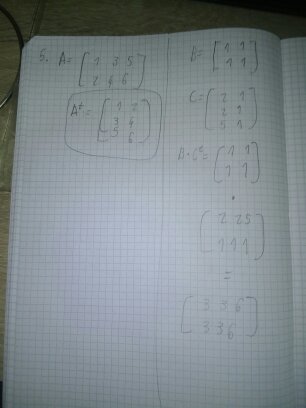 5. A = [ 1 3 5
2 4 6 ]
A^t = [ 1 2
3 4
5 6 ]
B = [ 1 1
1 1 ]
C = [ 2 1
2 1
5 1 ]
B · C^t = [ 1 1
1 1 ]
·
[ 2 2 5
1 1 1 ]
=
[ 3 3 6
3 3 6 ]